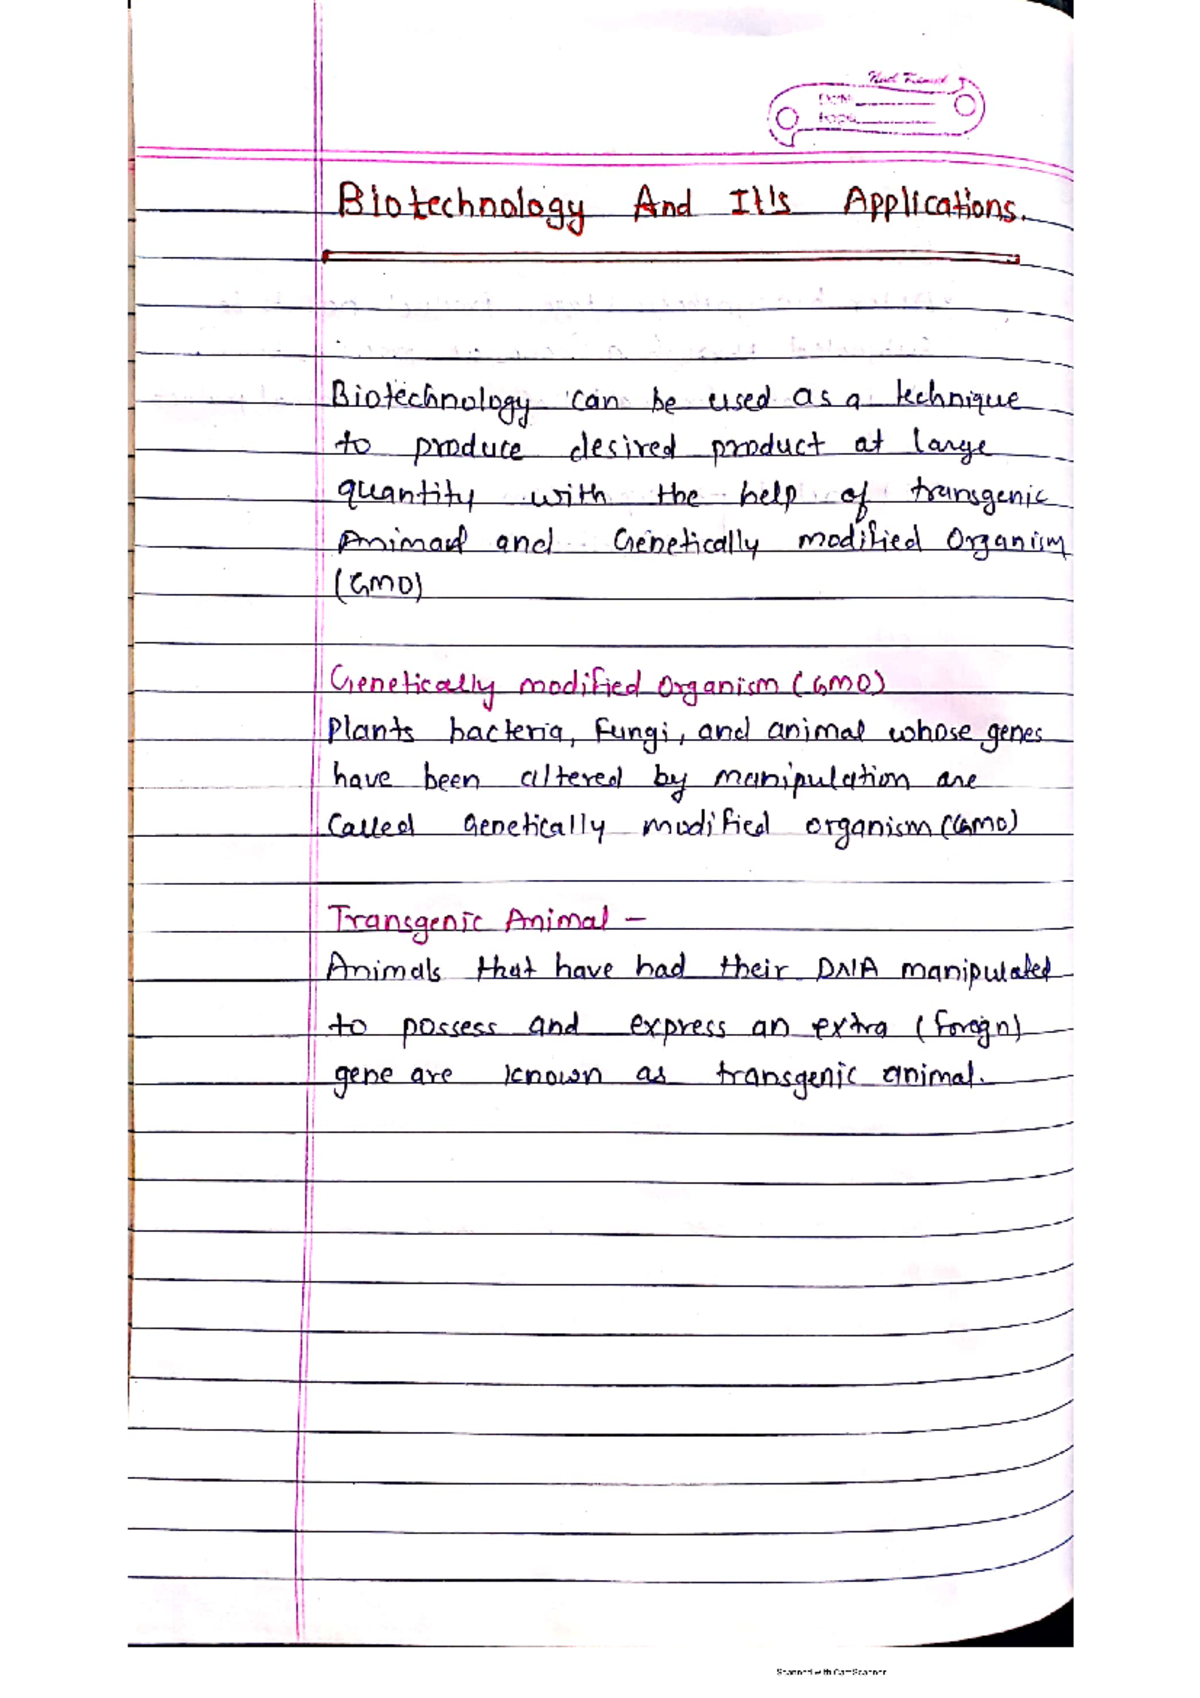 Biotechnology And It's Applications.
Biotechnology can be used as a technique
to produce desired product at large
quantity with the help of transgenic
Animal and Genetically modified Organism
(GMO)
Genetically modified Organism (GMO)
Plants bacteria, Fungi, and animal whose genes
have been altered by manipulation are
Called Genetically modified organism (GMO)
Transgenic Animal –
Animals that have had their DNA manipulated
to possess and express an extra (foregn)
gene are known as transgenic animal.
Scanned with CamScanner